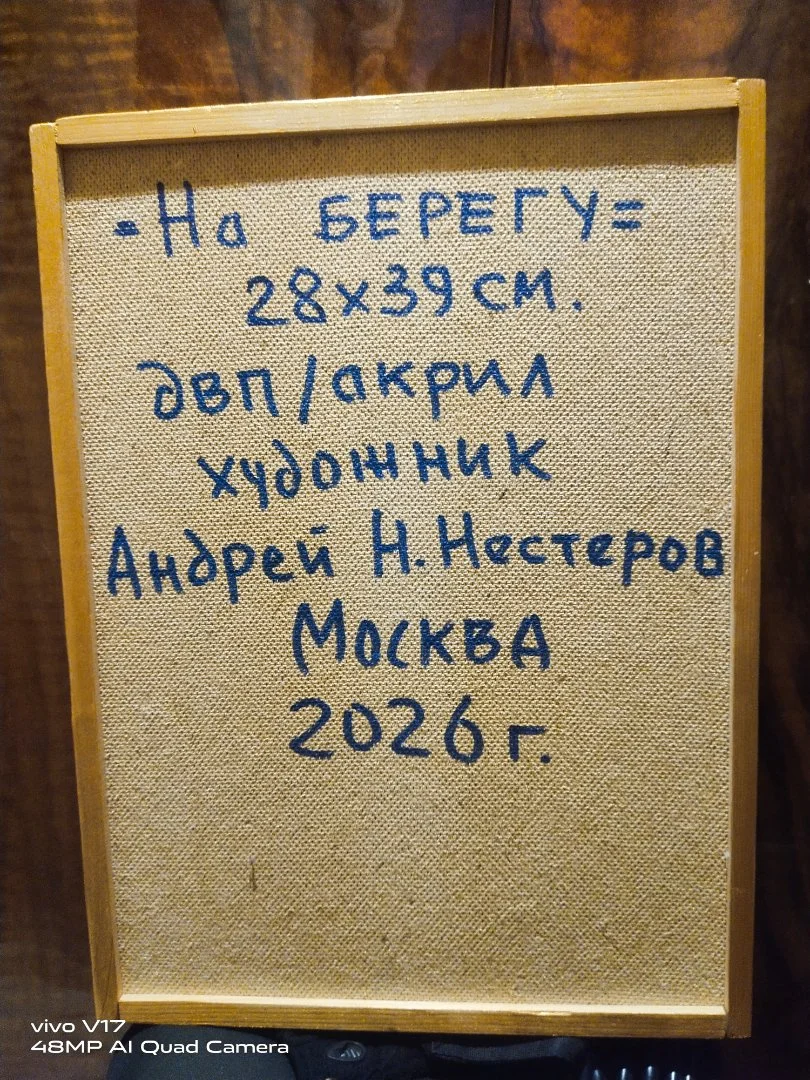 =На БЕРЕГУ=
28х39 см.
двп/акрил
художник
Андрей Н. Нестеров
Москва
2026 г.
vivo V17
48MP AI Quad Camera